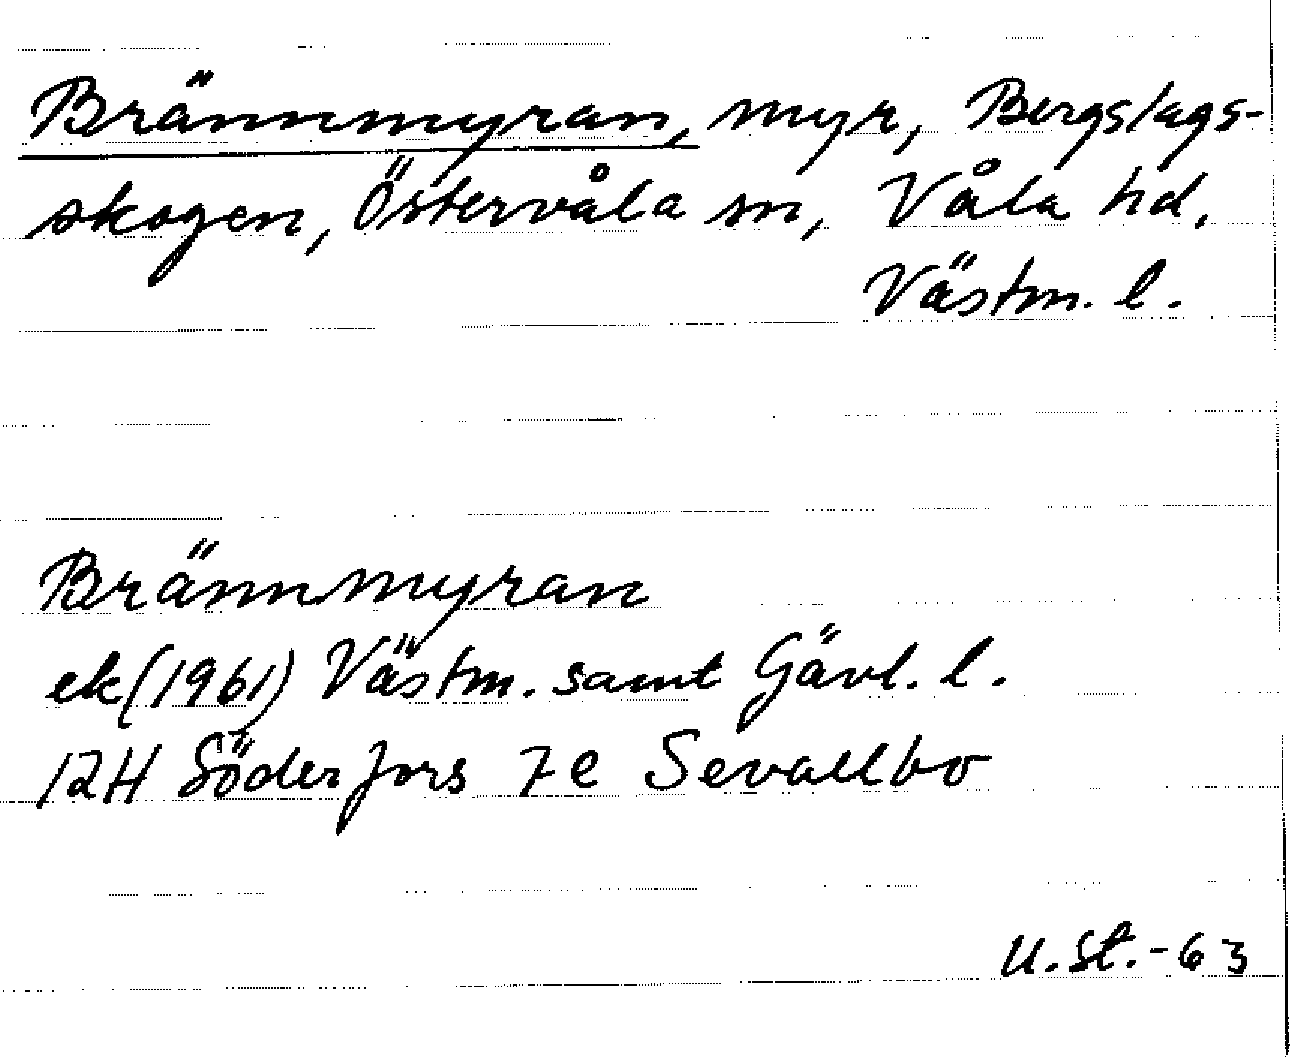 Brännmyran, myr, Bergslags-
skogen, Östervåla sn, Våla hd.
Västm. l.
Brännmyran
ek (1961) Västm. samt Gävl. l.
12H Söderfors 7e Sevallbo
U.St.-63